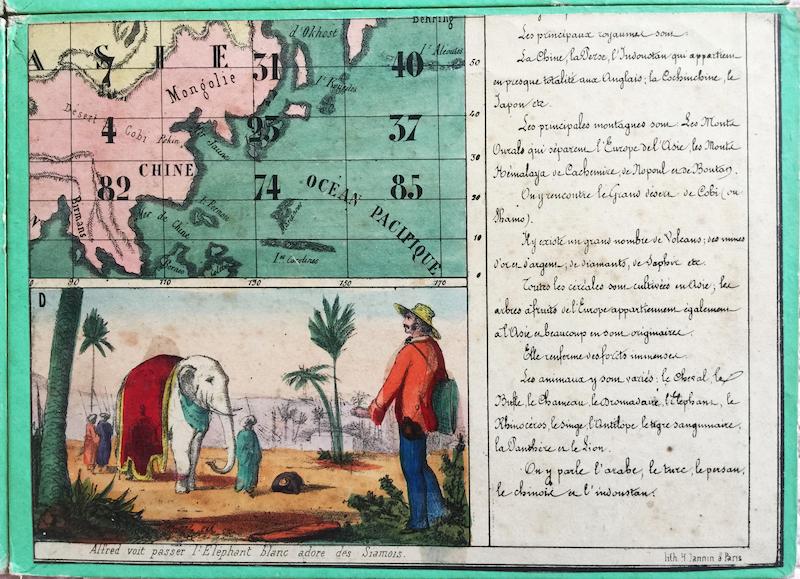 Behring
d'Okhost
ASIE
Is Aléoutes
7
31
40
50
Mongolie
Is Kouriles
Désert
Cobi
Pékin
4
25
37
40
30
CHINE
82
74
OCÉAN PACIFIQUE
85
20
Birmans
Mer de Chine
10
Bornéo
Is Carolines
0
90
110
130
150
170
D
Alfred voit passer l'Eléphant blanc adoré des Siamois.
Les principaux royaumes sont:
La Chine, la Perse, l'Indoustan qui appartient
en presque totalité aux Anglais; la Cochinchine, le
Japon etc.
Les principales montagnes sont: Les Monts
Ourals qui séparent l'Europe de l'Asie, les Monts
Himalaya de Cachemire, de Nopoul et de Boutan.
On y rencontre le Grand désert de Cobi (ou
Chamo).
Il y existe un grand nombre de Volcans; des mines
d'or et d'argent; de diamants, de Saphir etc.
Toutes les céréales sont cultivées en Asie; les
arbres à fruits de l'Europe appartiennent également
à l'Asie et beaucoup en sont originaires.
Elle renferme des forêts immenses.
Les animaux y sont variés: le Cheval, le
Buffle, le Chameau, le Dromadaire, l'Eléphant, le
Rhinocéros, le Singe, l'Antilope, le tigre sanguinaire,
la Panthère et le Lion.
On y parle l'arabe, le turc, le persan,
le chinois et l'indoustan.
lith. H. Jannin à Paris